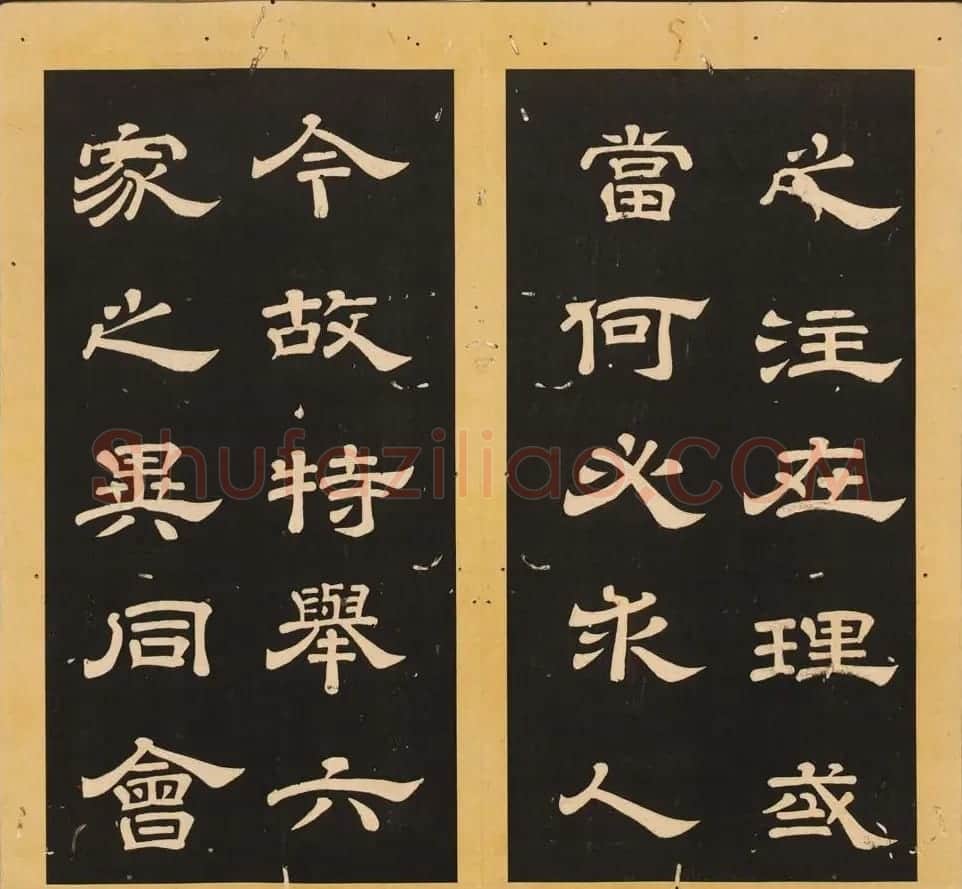 之注在理或
當何必求人
今故特舉六
家之異同會
Shufaziliao.COM